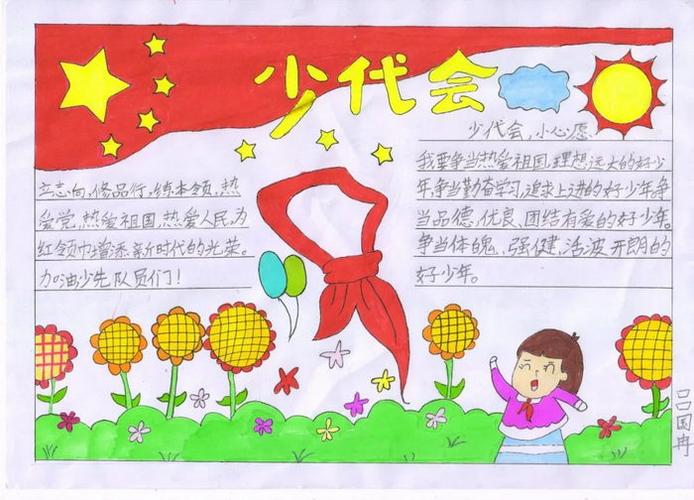 少代会
立志向,修品行,练本领,热
爱党,热爱祖国,热爱人民,为
红领巾增添新时代的光荣。
加油少先队员们!
少代会,小心愿
我要争当热爱祖国,理想远大的好少
年,争当勤奋学习,追求上进的好少年,争
当品德,优良、团结有爱的好少年。
争当体魄、强健,活波开朗的
好少年。
吕国冉